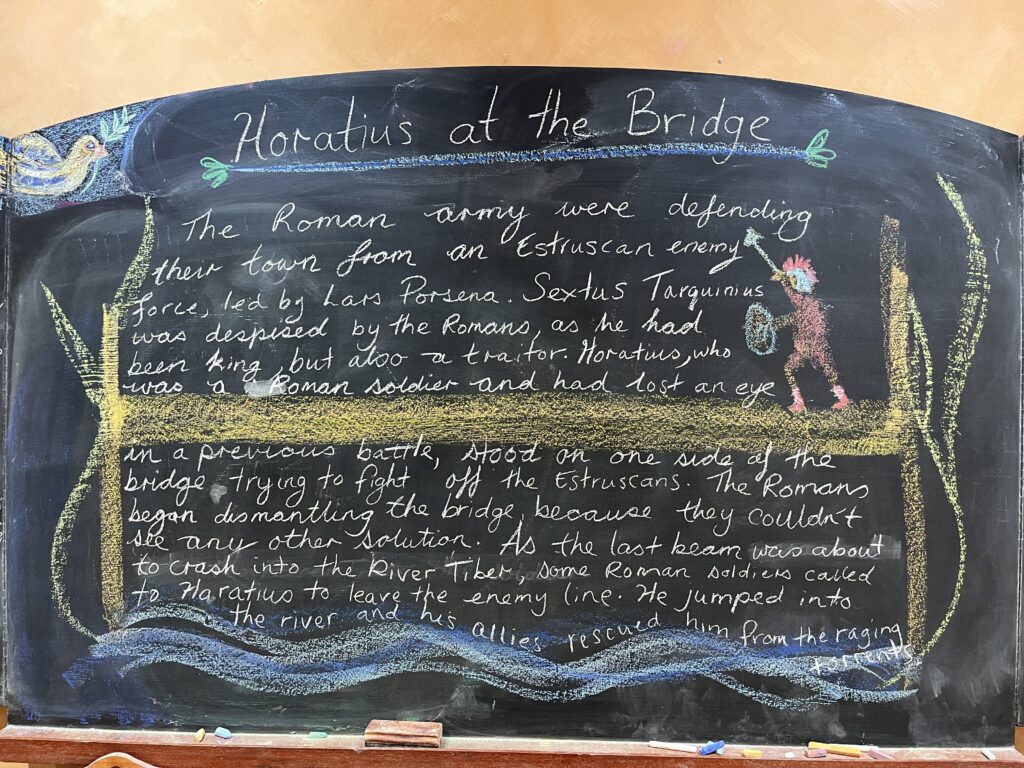 Horatius at the Bridge
The Roman army were defending
their town from an Estruscan enemy
force, led by Lars Porsena. Sextus Tarquinius
was despised by the Romans, as he had
been king, but also a traitor. Horatius, who
was a Roman soldier and had lost an eye
in a previous battle, stood on one side of the
bridge trying to fight off the Estruscans. The Romans
began dismantling the bridge, because they couldn't
see any other solution. As the last beam was about
to crash into the River Tiber, some Roman soldiers called
to Haratius to leave the enemy line. He jumped into
the river and his allies rescued him from the raging
torrents